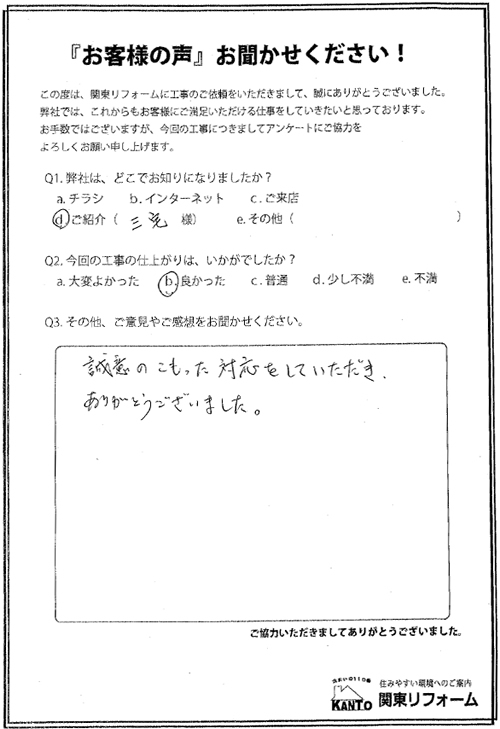 『お客様の声』お聞かせください！
この度は、関東リフォームに工事のご依頼をいただきまして、誠にありがとうございました。
弊社では、これからもお客様にご満足いただける仕事をしていきたいと思っております。
お手数ではございますが、今回の工事につきましてアンケートにご協力を
よろしくお願い申し上げます。
Q1. 弊社は、どこでお知りになりましたか？
a. チラシ b. インターネット c. ご来店
d. ご紹介（ 様） e. その他（ ）
Q2. 今回の工事の仕上がりは、いかがでしたか？
a. 大変よかった b. 良かった c. 普通 d. 少し不満 e. 不満
Q3. その他、ご意見やご感想をお聞かせください。
誠意のこもった対応をしていただき、
ありがとうございました。
ご協力いただきましてありがとうございました。
住まいの110番
KANTO
住みやすい環境へのご案内
関東リフォーム